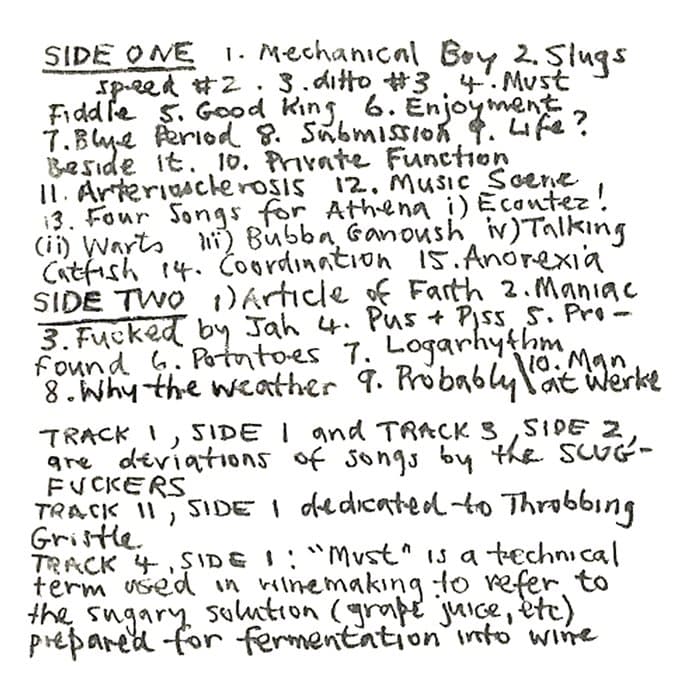 SIDE ONE 1. Mechanical Boy 2. Slugs
speed #2. 3. ditto #3. 4. Must
Fiddle 5. Good King 6. Enjoyment
7. Blue Period 8. Submission 9. Life?
Beside it. 10. Private Function
11. Arteriosclerosis 12. Music Scene
13. Four Songs for Athena i) Ecoutez!
(ii) Warts iii) Bubba Ganoush iv) Talking
Catfish 14. Coordination 15. Anorexia
SIDE TWO 1) Article of Faith 2. Maniac
3. Fucked by Jah 4. Pus + Piss 5. Pro-
found 6. Potatoes 7. Logarhythm
8. Why the weather 9. Probably \ 10. Man at Werke
TRACK 1, SIDE 1 and TRACK 3, SIDE 2,
are deviations of songs by the SLUG-
FUCKERS
TRACK 11, SIDE 1 dedicated to Throbbing
Gristle.
TRACK 4, SIDE 1: "Must" is a technical
term used in winemaking to refer to
the sugary solution (grape juice, etc)
prepared for fermentation into wine